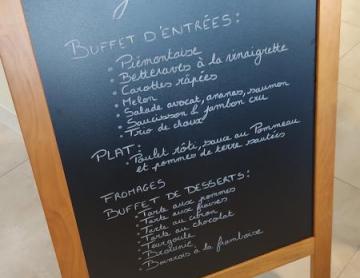 BUFFET D'ENTRÉES :
• Piémontaise
• Betteraves à la vinaigrette
• Carottes râpées
• Melon
• Salade avocat, ananas, saumon
• Saucisson & jambon cru
• Trio de choux
PLAT :
• Poulet rôti, sauce au Pommeau
et pommes de terre sautées
FROMAGES
BUFFET DE DESSERTS :
• Tarte aux pommes
• Tarte aux fraises
• Tarte au citron
• Tarte au chocolat
• Teurgoule
• Brownie
• à la framboise